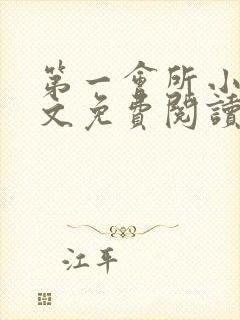 第一會所小
文免費閱讀
江平